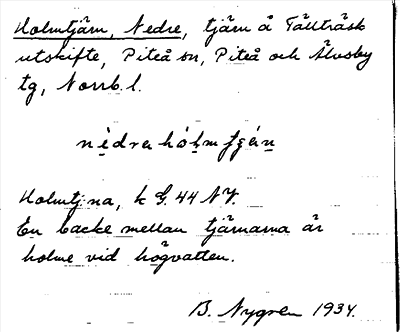 Holmtjärn, Nedre, tjärn å Tällträsk
utskifte, Piteå sn, Piteå och Älvsby
tg, Norrb. l.
Holmtj:na, k G. 44 NV.
En backe mellan tjärnarna är
holme vid högvatten.
B. Nygren 1934.